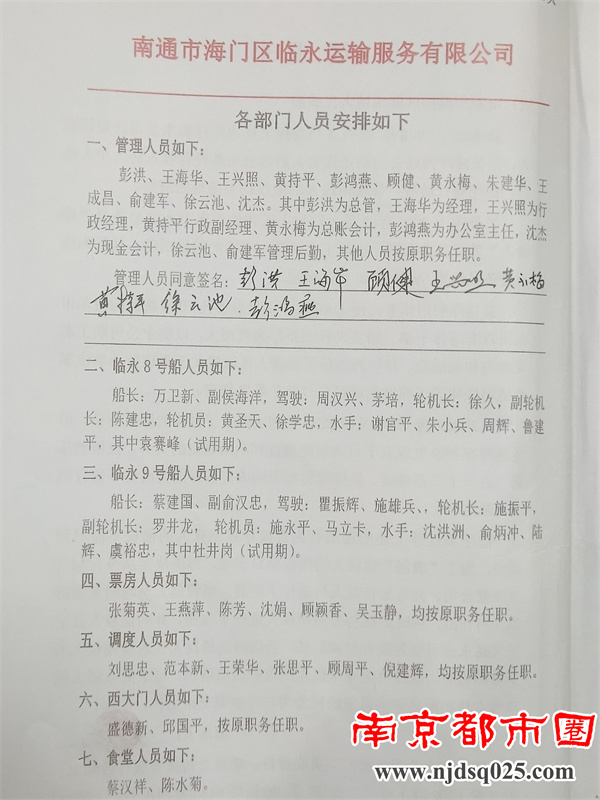 南通市海门区临永运输服务有限公司
各部门人员安排如下
一、管理人员如下：
彭洪、王海华、王兴照、黄持平、彭鸿燕、顾健、黄永梅、朱建华、王
成昌、俞建军、徐云池、沈杰。其中彭洪为总管，王海华为经理，王兴照为行
政经理，黄持平行政副经理、黄永梅为总账会计，彭鸿燕为办公室主任，沈杰
为现金会计，徐云池、俞建军管理后勤，其他人员按原职务任职。
管理人员同意签名：彭洪 王海华 顾健 王兴照 黄永梅
黄持平 徐云池. 彭鸿燕
二、临永8号船人员如下：
船长：万卫新、副侯海洋，驾驶：周汉兴、茅培，轮机长：徐久，副轮机
长：陈建忠，轮机员：黄圣天、徐学忠，水手：谢官平、朱小兵、周辉、鲁建
平，其中袁赛峰（试用期）。
三、临永9号船人员如下：
船长：蔡建国、副俞汉忠，驾驶：瞿振辉、施雄兵、，轮机长：施振平，
副轮机长：罗井龙， 轮机员：施永平、马立卡，水手：沈洪洲、俞炳冲、陆
辉、虞裕忠，其中杜井岗（试用期）。
四、票房人员如下：
张菊英、王燕萍、陈芳、沈娟、顾颖香、吴玉静，均按原职务任职。
五、调度人员如下：
刘思忠、范本新、王荣华、张思平、顾周平、倪建辉，均按原职务任职。
六、西大门人员如下：
盛德新、邱国平，按原职务任职。
七、食堂人员如下：
蔡汉祥、陈水菊。
南京都市圈
www.njdsq025.com